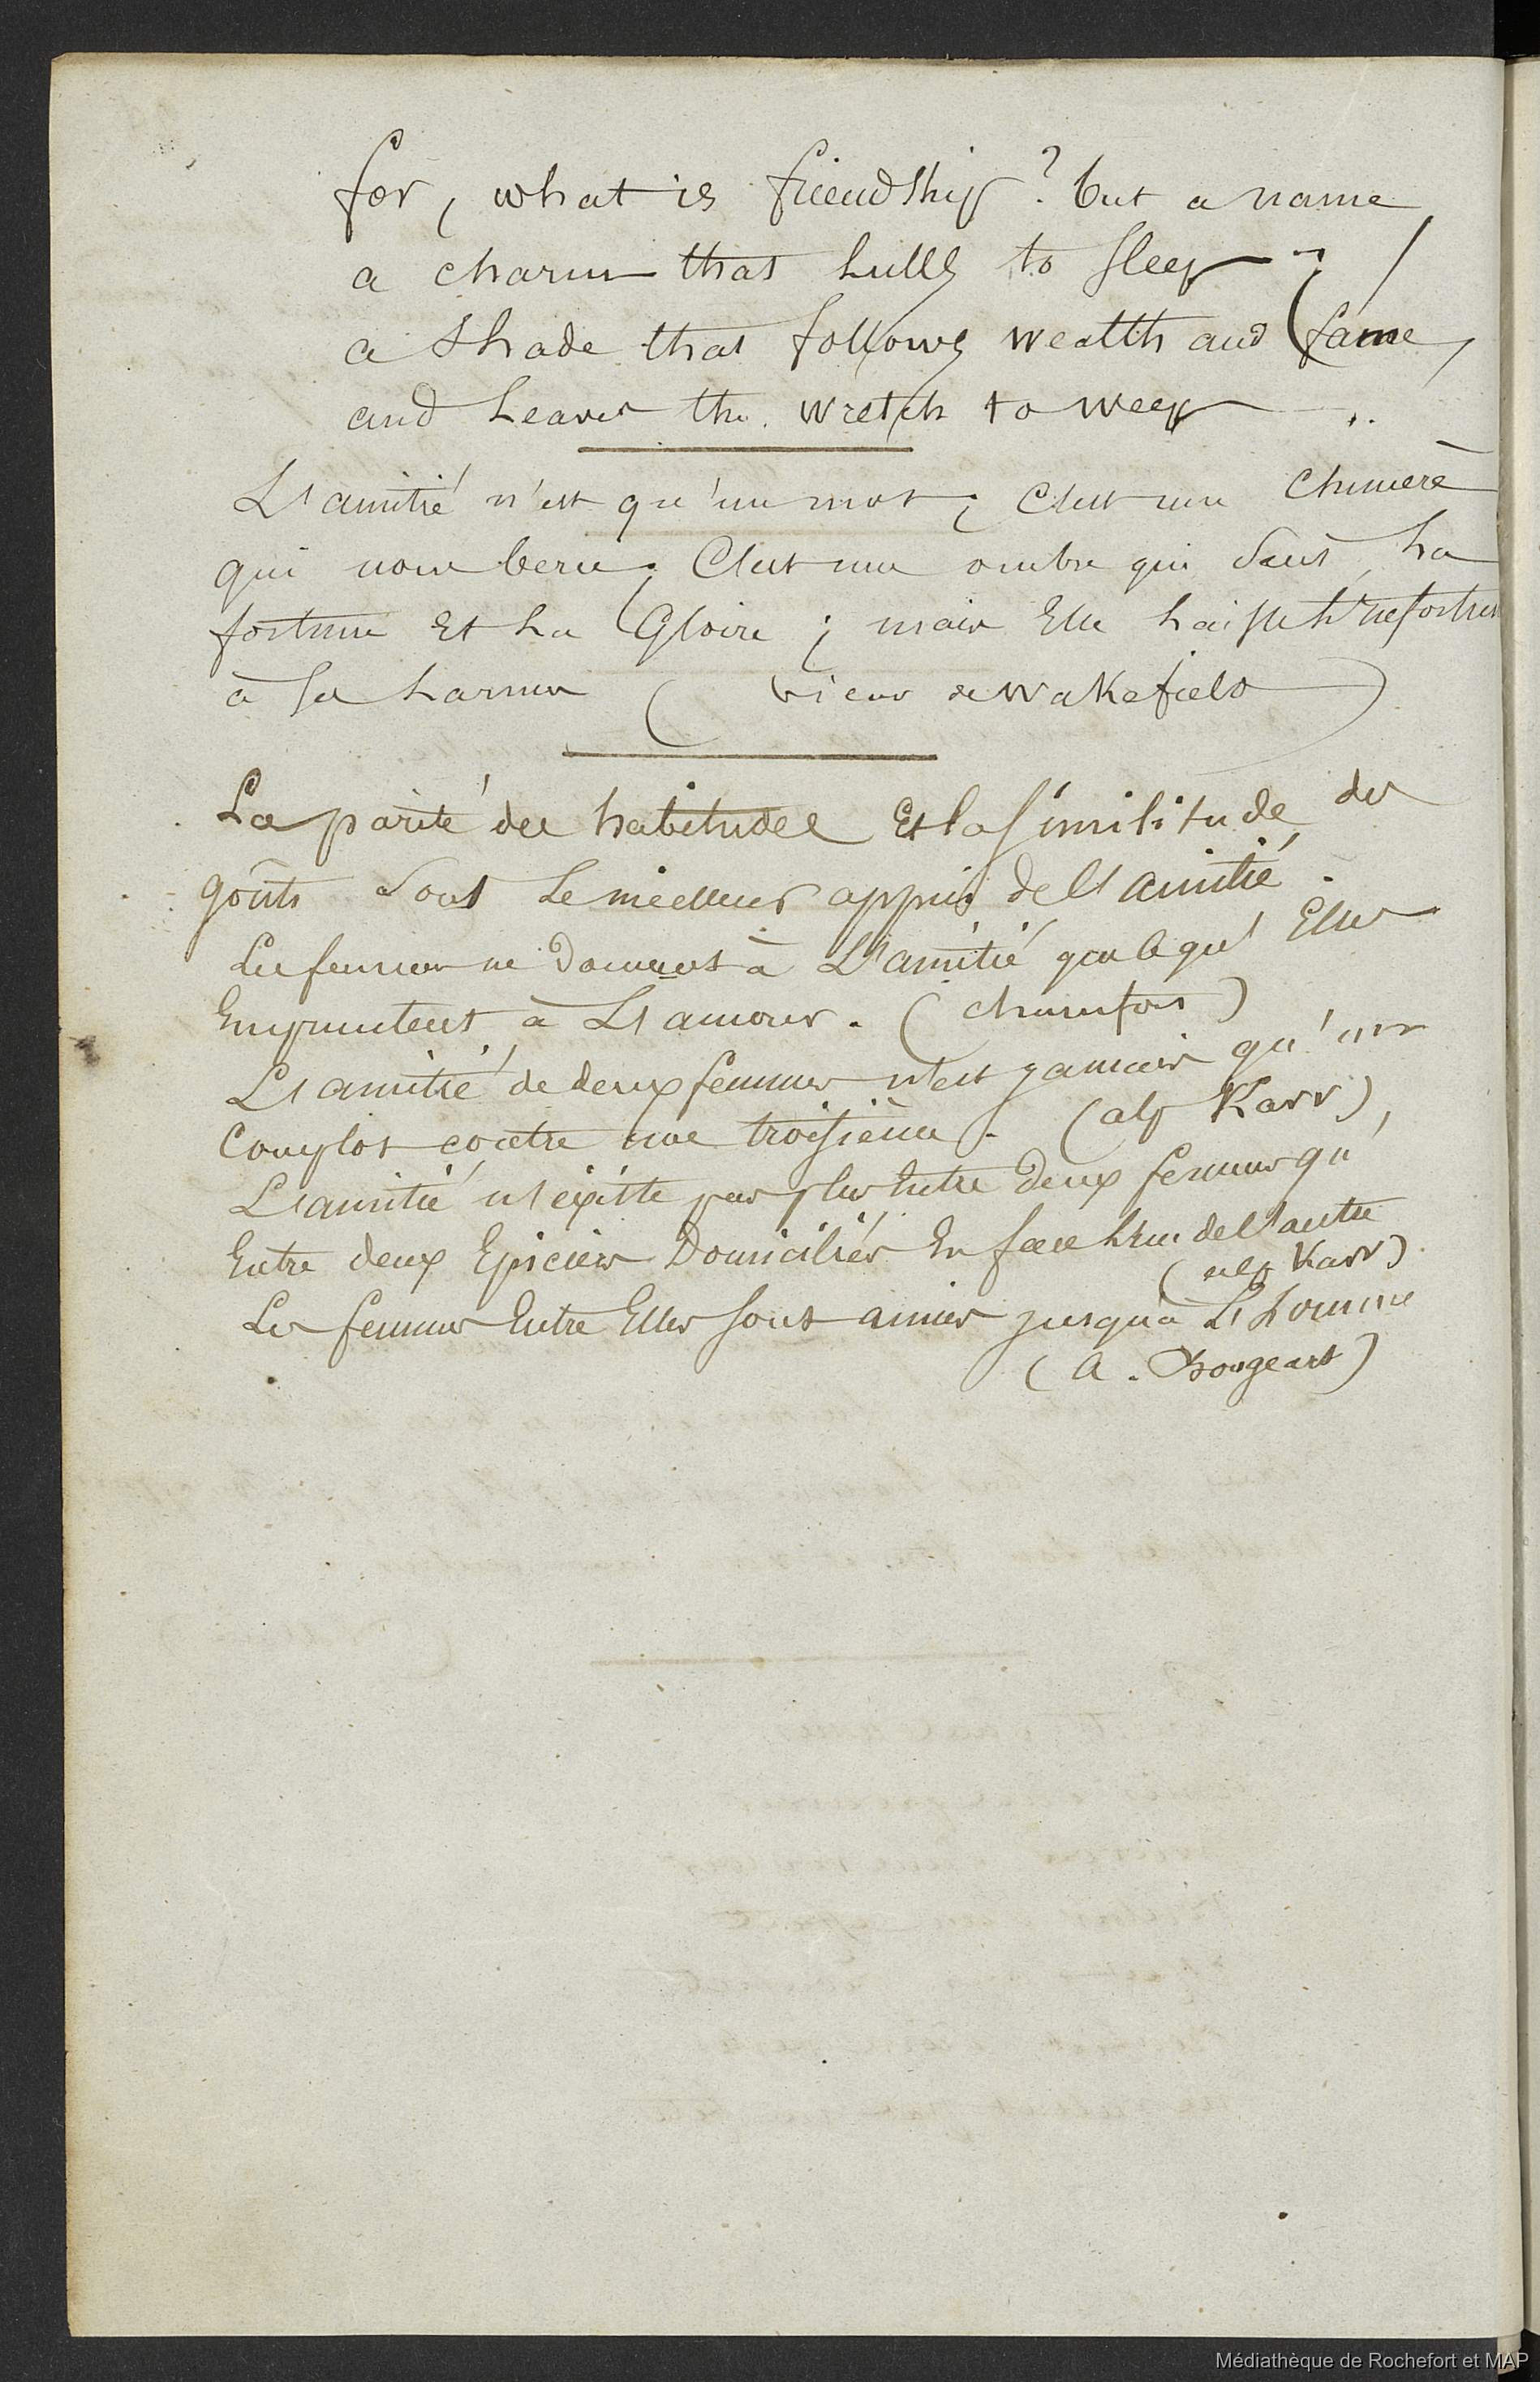 for, what is friendship? but a name
a charm that lulls to sleep ;
a shade that follows wealth and fame,
and leaves the wretch to weep ..
L'amitié n'est qu'un mot ; C'est une Chimère
qui nous berce ; C'est une ombre qui suit la
fortune Et la Gloire ; mais Elle laisse l'infortuné
à ses larmes ( vicar de Wakefield )
La parité des habitudes Et la similitude des
goûts sont le meilleur appui de l'amitié.
Les femmes ne Donnent à L'amitié que ce qu'Elles
Empruntent à L'amour. ( chamfort )
L'amitié de deux femmes n'est jamais qu'un
Complot contre une troisième. (alp Karr)
L'amitié n'existe pas plus Entre Deux femmes qu'
Entre deux Epiciers Domiciliés En face L'un de l'autre
(alp Karr)
Les femmes Entre Elles sont amies jusqu'à L'homme
( A. Rougeart)
Médiathèque de Rochefort et MAP